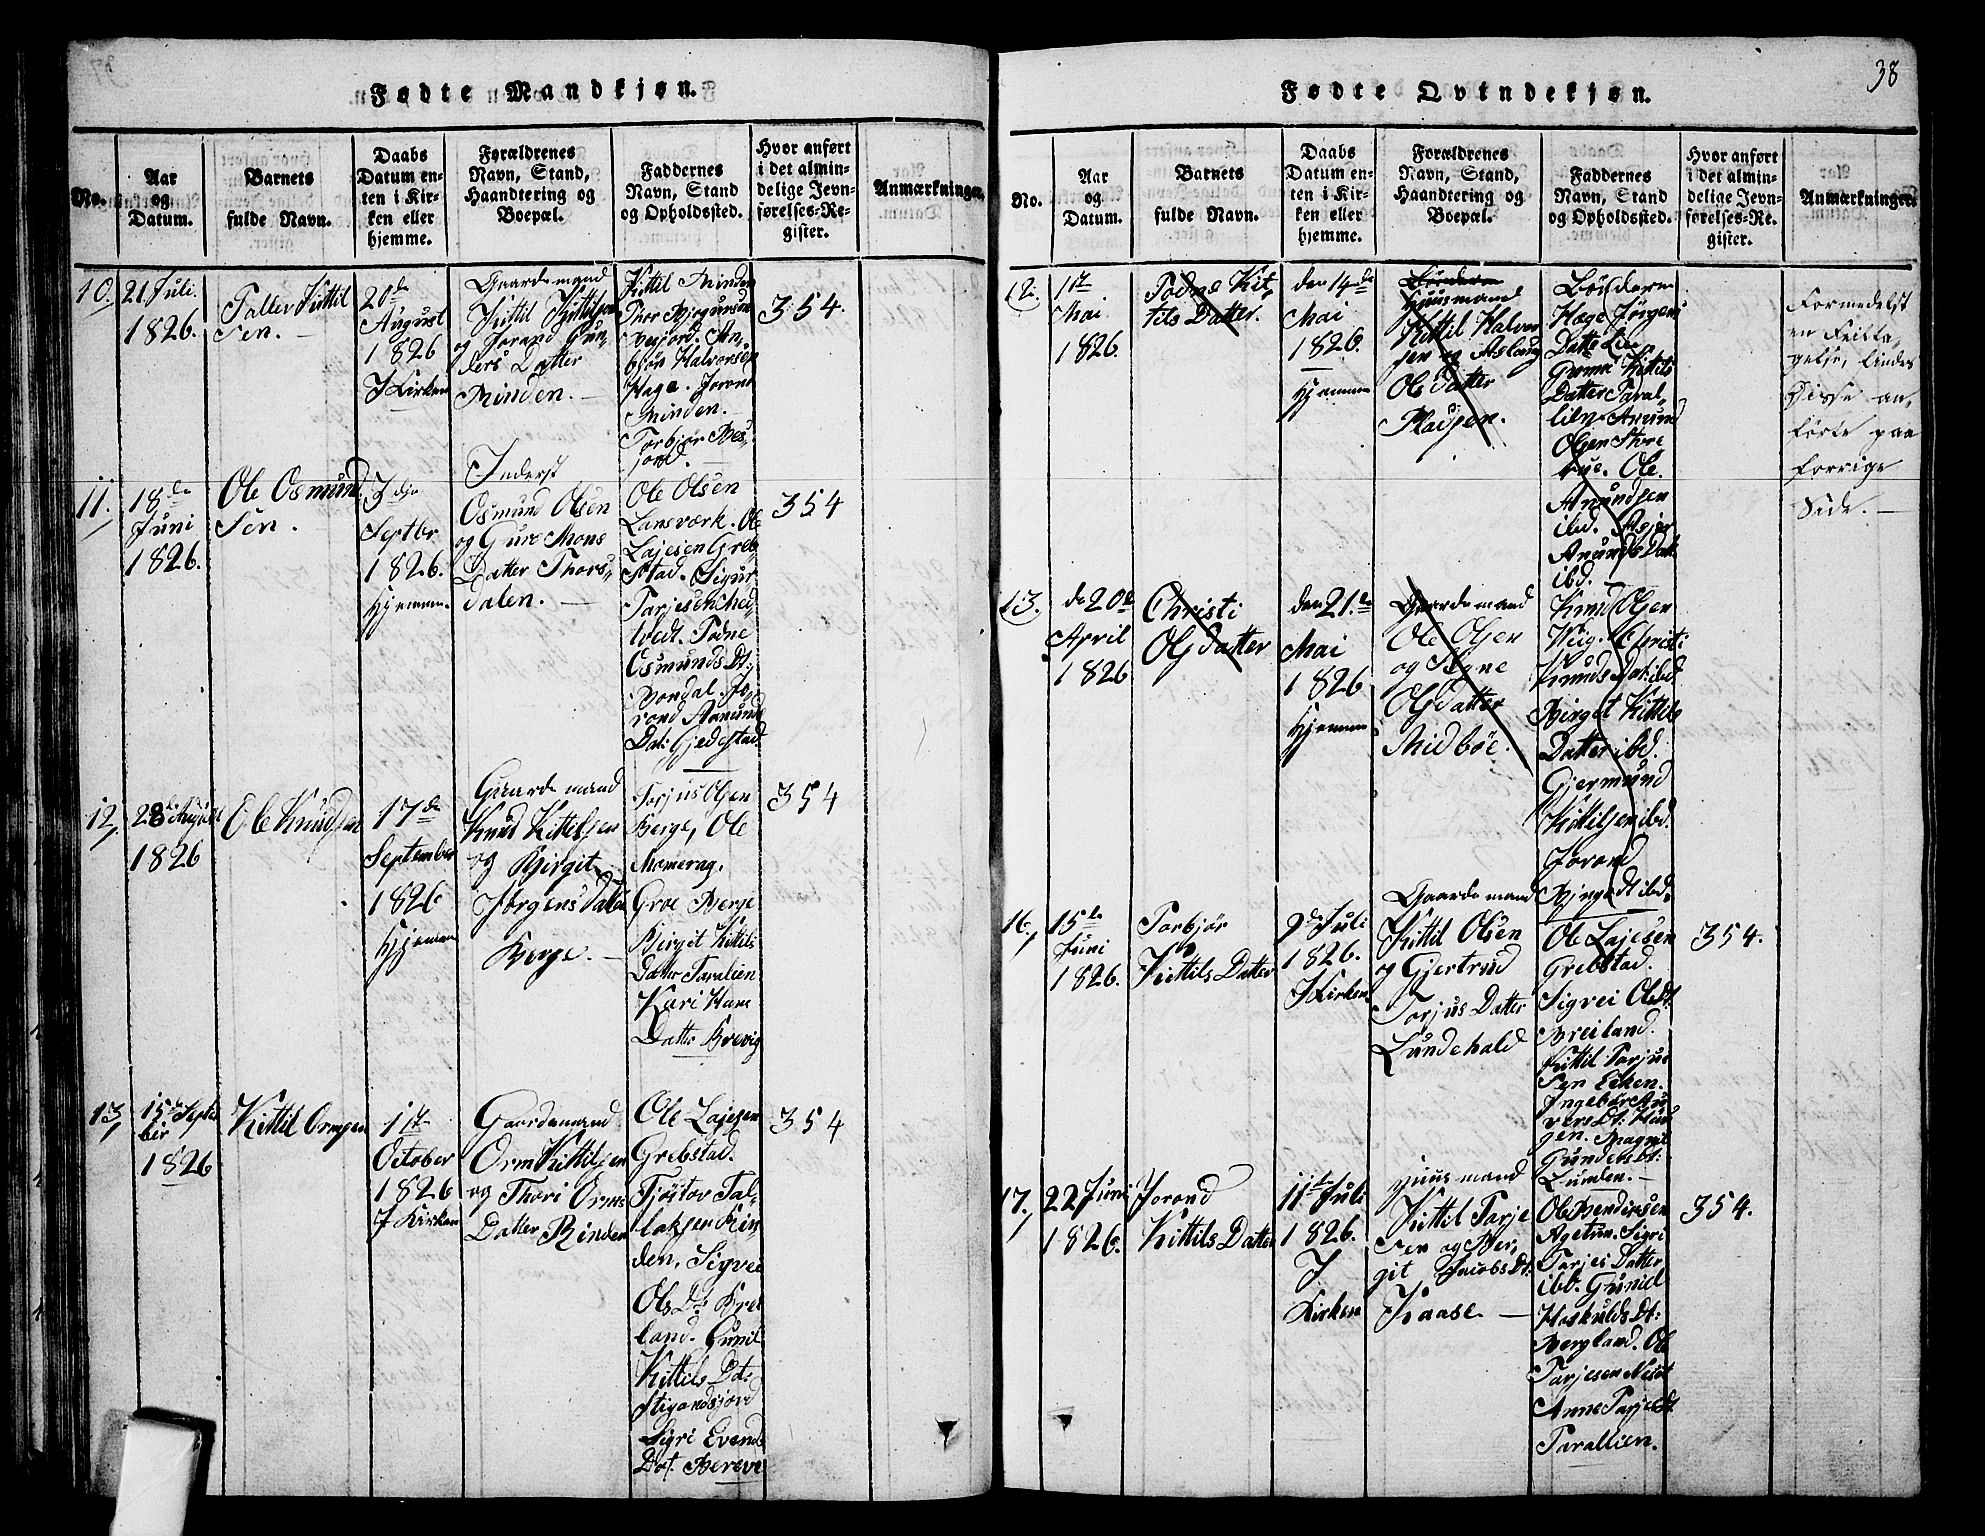 Fødte Mandkjøn.
No.
Aar
og
Datum.
Barnets
fulde Navn.
Daabs
Datum en-
ten i Kir-
ken eller
hjemme.
Forældrenes
Navn, Stand,
Haandtering og
Boepæl.
Faddernes
Navn, Stand
og Opholdssted.
Hvor anført
i det almin-
delige Jevn-
førelses-Re-
gister.
Anmærkninger.
10.
21 Juli.
1826.
Kittil
Sen.
20de
August
1826
I Kirken
Gaardemand
Kittil Kittilsen
og Jorand Gun-
ders Datter
Rinden.
Kittil Rinden
Halvorsen
Hage. Joron
Rinden.
Torbjør Bes-
jord.
354.
11.
18de
Juni
1826.
Ole Osmund
Sen.
3die
Septbr
1826.
Hjemme.
Inderst
Osmund Olsen
og Guro Mons
Datter Thors-
dalen.
Ole Olsen
Lansværk. Ole
Lajesen Greb-
stad. Sigur
Tarjesen
Osmunds Dt:
Dat: Gjedestad.
354
12,
28de August
1826
Ole Knudsen
17de
September
1826
Hjemme
Gaardemand
Knud Kittelsen
og Birgit
Jørgens Datter
Berge.
Torjus Olsen
Berge, Ole
Momerag.
Groe Berge
Birgit Kittils
Datter Taralien
Kari
Datter
354
13,
15de Septem
ber
1826
Kittil Ormsen
1ste
October
1826
I Kirken
Gaardemand
Orm Kittilsen
og Thori Orms
Datter Rinden
Ole Lajesen
Grebstad.
Tjøstov Tal-
laksen Rin-
den, Sigvei
Ols Dt: Brei
land. Gunil
Kittils Dt:
Sigri Evends
Dat.
354
38
Fødte Qvindekjøn.
No.
Aar
og
Datum.
Barnets
fulde Navn.
Daabs
Datum en-
ten i Kir-
ken eller
hjemme.
Forældrenes
Navn, Stand,
Haandtering og
Boepæl.
Faddernes
Navn, Stand
og Opholdssted.
Hvor anført
i det almin-
delige Jevn-
førelses-Re-
gister.
Anmærkninger.
12.
1ste
Mai
1826.
Todne Kit-
tils Datter.
den 14de
Mai
1826.
Hjemme
Huusmand
Kittil Halvor
sen og Aslaug
Ole Datter
Pladsen.
Bønderne
Hæge Jørgens
Datter Lie,
Kittils
Datter Taral-
lien Anund
Olsen Store
bue. Ole
Anundsen
ibd.
Anunds Datt
ibd.
Formedelst
en Feilta-
gelse, findes
Disse an-
førte paa
forrige
Side.
13.
de 20de
April
1826
Christi
Olsdatter
den 21de
Mai
1826
Hjemme
Gaardemand
Ole Olsen
og Signe
Olsdatter
Midbøe.
Knud Olsen
Christi
Knuds Dat: ibd
Birget Kittils
Datter ibd.
Gjermund
Kittilsen ibd.
Jorand
ibd.
16.
15de
Juni
1826.
Torbjør
Kittils Datter
9de Juli
1826.
I Kirken
Gaardemand
Kittil Olsen
og Gjertrud
Torjus Datter
Lundehald
Ole Lajesen
Grebstad.
Sigvei Ols Dt:
Breiland.
Kittil Tarju
Sen Eiken.
Gunders Dt:
Lunden.
354.
17.
22 Juni
1826.
Jorand
Kittils Datter
11te Juli
1826.
I
Kirken
Huusmand
Kittil Tarje
Sen og Ber-
git Jacobs Dt:
Kaase.
Ole Bendixsen
Agetun. Sigri
Tarjes Datter
ibd. Guniel
Hoskulds Dt:
Bergland. Ole
Tarjesen
Anne Tarjes Dt:
Tarallien.
354.